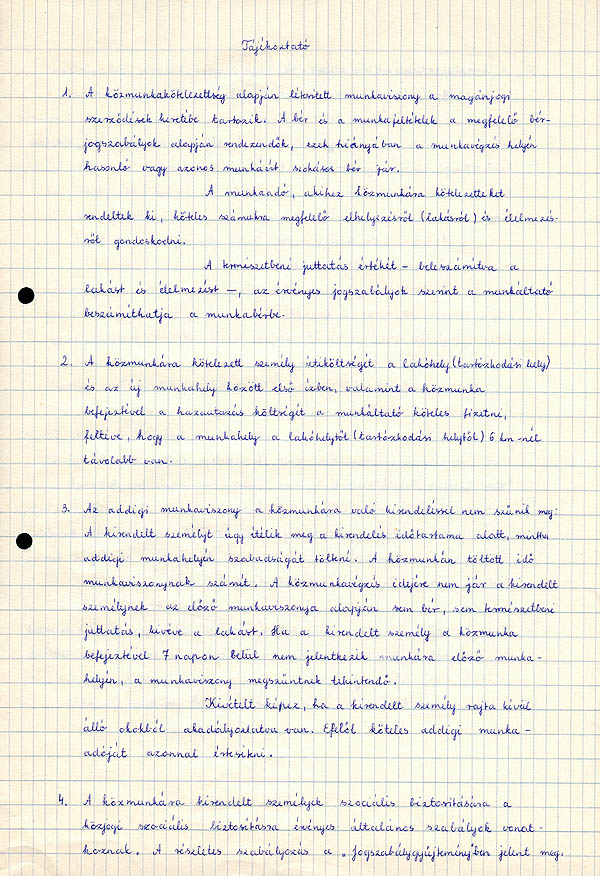 Tájékoztató
1. A közmunkakötelezettség alapján létesített munkaviszony a magánjogi
szerződések keretébe tartozik. A bér és a munkafeltételek a megfelelő bér-
jogszabályok alapján rendezendők, ezek hiányában a munkavégzés helyén
hasonló vagy azonos munkáért szokásos bér jár.
A munkaadó, akihez közmunkára kötelezetteket
rendeltek ki, köteles számukra megfelelő elhelyezésről (lakásról) és élelmezés-
ről gondoskodni.
A természetbeni juttatás értékét - beleszámítva a
lakást és élelmezést -, az érvényes jogszabályok szerint a munkáltató
beszámíthatja a munkabérbe.
2. A közmunkára kötelezett személy útiköltségét a lakóhely (tartózkodási hely)
és az új munkahely között első ízben, valamint a közmunka
befejeztével a hazautazás költségét a munkáltató köteles fizetni,
feltéve, hogy a munkahely a lakóhelytől (tartózkodási helytől) 6 km-nél
távolabb van.
3. Az addigi munkaviszony a közmunkára való kirendeléssel nem szűnik meg.
A kirendelt személyt úgy ítélik meg a kirendelés időtartama alatt, mintha
addigi munkahelyén szabadságát töltené. A közmunkán töltött idő
munkaviszonynak számít. A közmunkavégzés idejére nem jár a kirendelt
személynek az előző munkaviszonya alapján sem bér, sem természetbeni
juttatás, kivéve a lakást. Ha a kirendelt személy a közmunka
befejeztével 7 napon belül nem jelentkezik munkára előző munka-
helyén, a munkaviszony megszűntnek tekintendő.
Kivételt képez, ha a kirendelt személy rajta kívül
álló okokból akadályoztatva van. Efelől köteles addigi munka-
adóját azonnal értesíteni.
4. A közmunkára kirendelt személyek szociális biztosítására a
közjogi szociális biztosításra érvényes általános szabályok vonat-
koznak. A részletes szabályozás a "Jogszabálygyűjtemény"ben jelent meg.